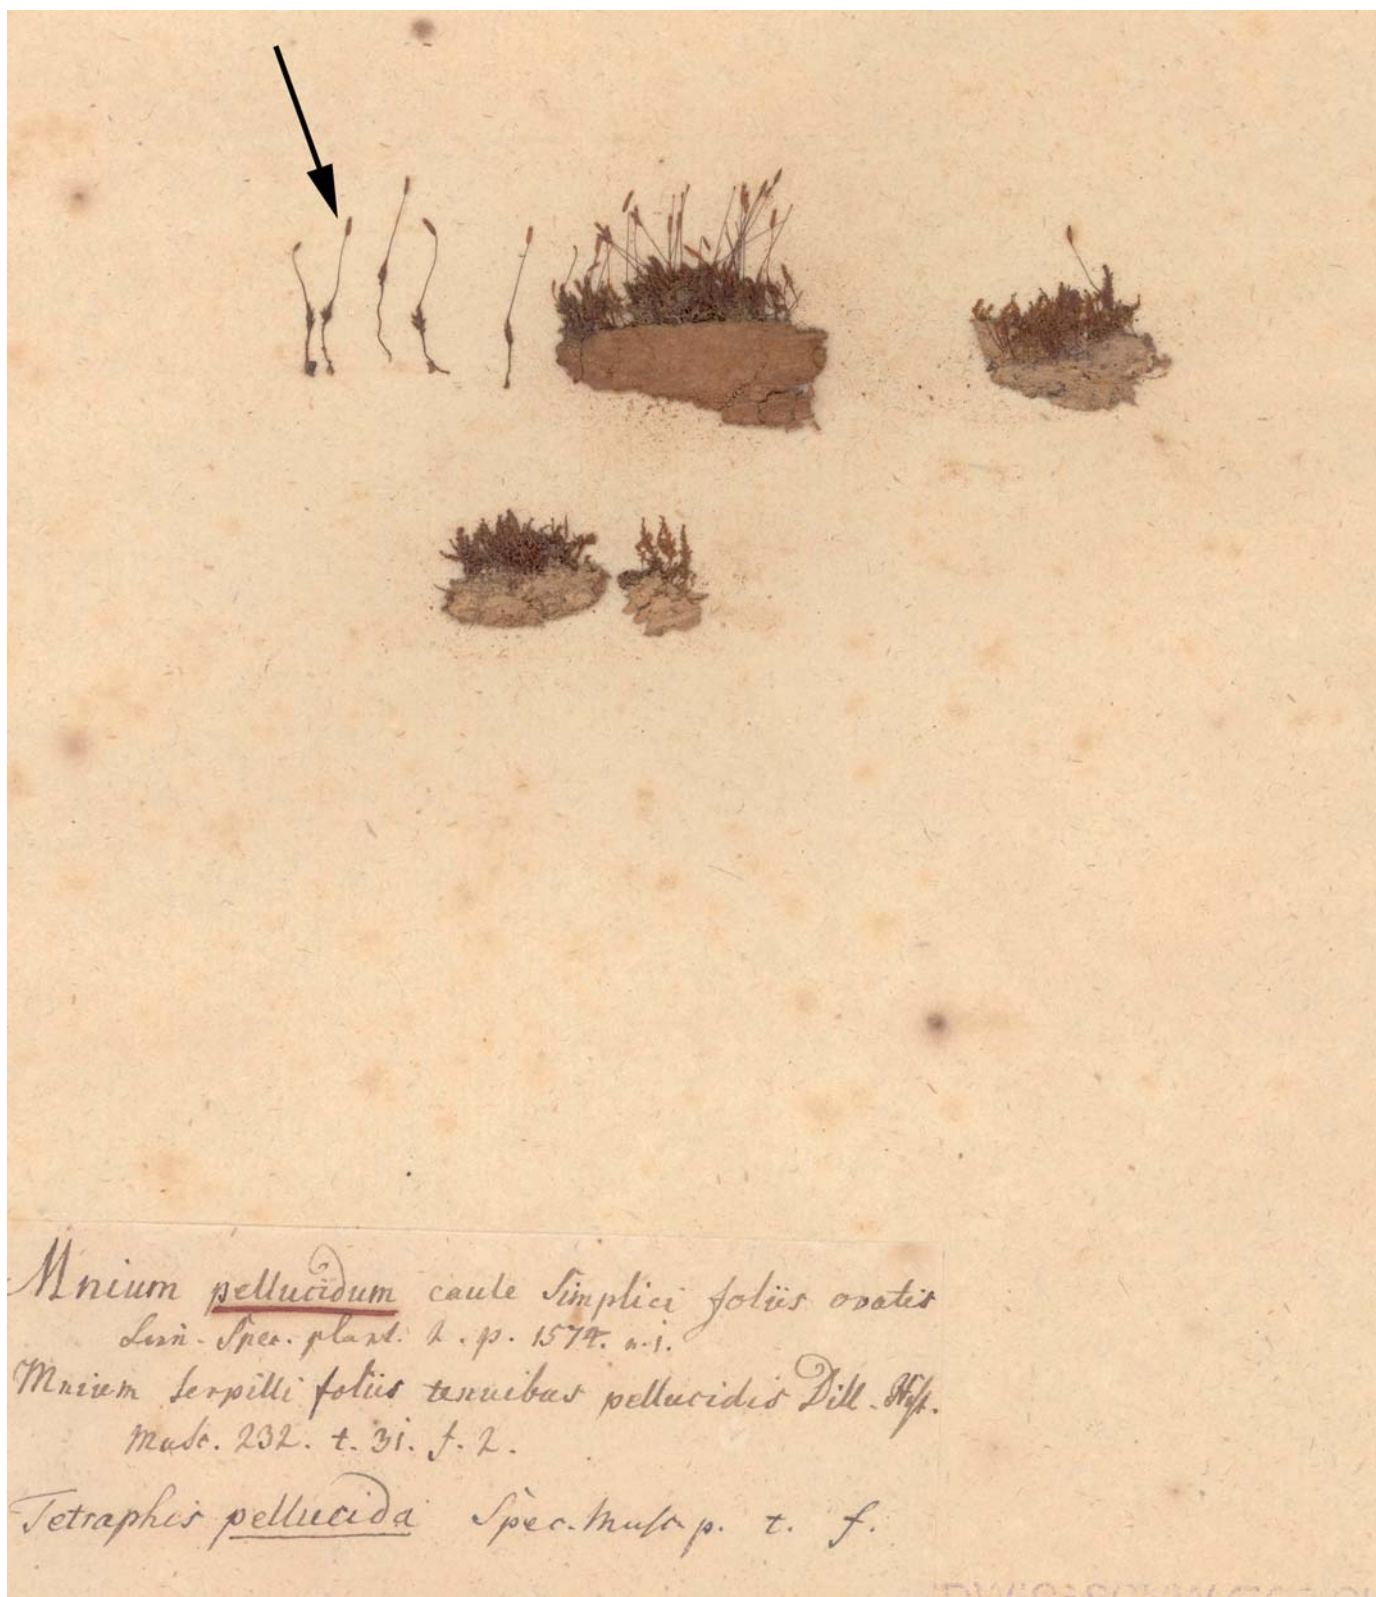 Mnium pellucidum caule simplici foliis ovatis
Linn. Spec. plant. 2. p. 1574. n. 1.
Mnium serpilli foliis tenuibus pellucidis Dill. Hist.
Musc. 232. t. 31. f. 2.
Tetraphis pellucida Spec. Musc. p. t. f.